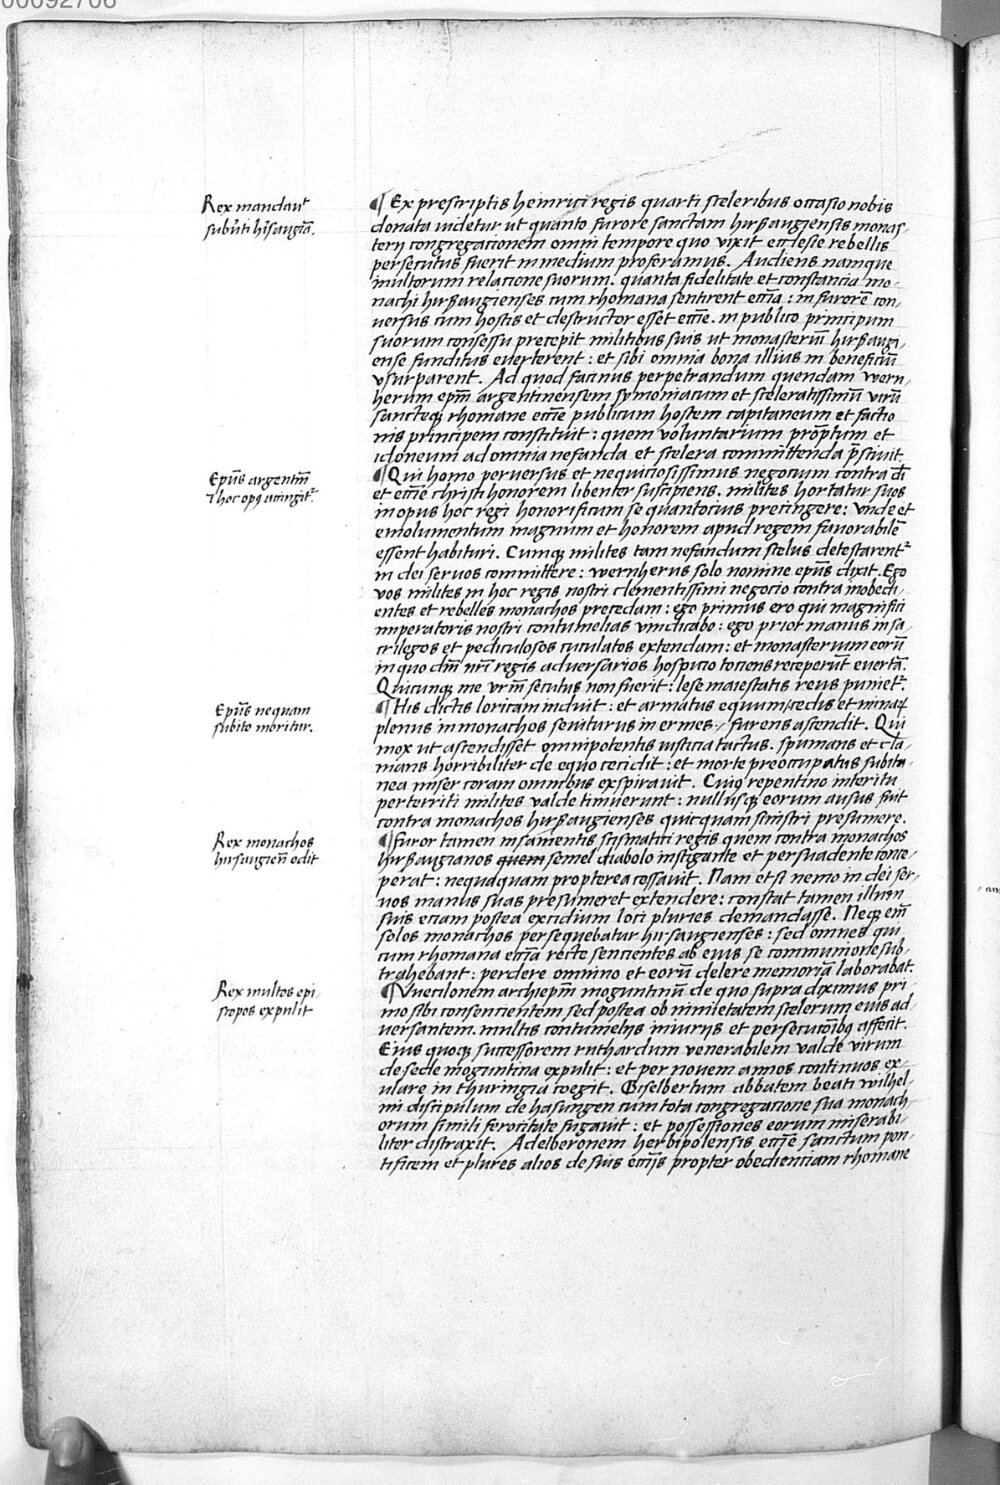 00092706
Rex mandaut
subūti hirsaugiā.
¶ Ex prescriptis heinrici regis quarti sceleribus occasio nobis
donata uidetur ut quanto furore sanctam hirßaugiensis monas
terij congregacionem omni tempore quo vixit ecclesie rebellis
persecutus fuerit in medium proferamus. Audiens namque
multorum relacione suorum. quanta fidelitate et constancia mo-
nachi hirßaugienses cum rhomana sentirent eccīa : in furorē con,
uersus cum hostis et destructor esset eccīe. in publico principum
suorum consessu precepit militibus suis ut monasteriū hirßaugi,
ense funditus euerterent : et sibi omnia bona illius in beneficiū
vsurparent. Ad quod facinus perpetrandum quendam wern,
herum epm̄ argentinensem symoniacum et sceleratissimū virū
sancteqꝫ rhomane eccīe publicum hostem capitaneum et factio
nis principem constituit : quem voluntarium prōptum et
idoneum ad omnia nefanda et scelera committenda p̄sciuit
Epūs argentin̄
ī hoc opꝰ accingit᷑
¶ Qui homo peruersus et nequiciosissimus negocium contra dī
et eccīe christi honorem libenter suscipiens. milites hortatur suos
in opus hoc regi honorificum se quantocius precingere : vnde et
emolumentum magnum et honorem apud regem fauorabilē
essent habituri. Cumqꝫ milites tam nefandum scelus detestarent᷑
in dei seruos committere : wernherus solo nomine epūs dixit. Ego
vos milites in hoc regis nostri clementissimi negocio contra inobedi,
entes et rebelles monachos precedam : ego primus ero qui magnifici
imperatoris nostri contumelias vindicabo : ego prior manus in sa
crilegos et pediculosos cucullatos extendam : et monasterium eorū
in quo dn̄i nr̄i regis aduersarios hospicio tociens receperūt euertā.
Quicunqꝫ me vr̄m secutus non fuerit : lese maiestatis reus puniet᷑.
Epūs nequam
subito moritur.
¶ His dictis loricam induit : et armatus equum, cedis et minaꝝ
plenus in monachos seuiturus inermes, furens ascendit. Qui
mox ut ascendisset omnipotentis iusticia tactus. spumans et cla-
mans horribiliter de equo cecidit : et morte preoccupatus subita-
nea miser coram omnibus exspirauit. Cuiꝰ repentino interitu
perterriti milites valde timuerunt : nullusqꝫ eorum ausus fuit
contra monachos hirßaugienses quicquam sinistri presumere.
Rex monachos
hirsaugien̄ odit
¶ Furor tamen insanientis scismatici regis quem contra monachos
hirßaugianos quem semel diabolo instigante et persuadente conce-
perat : nequaquam propterea cessauit. Nam etsi nemo in dei ser-
uos manus suas presumeret extendere : constat tamen illum
suis eciam postea excidium loci pluries demandasse. Neqꝫ em̄
solos monachos persequebatur hirsaugienses : sed omnes qui
cum rhomana eccīa recte sencientes ab eius se communione sub-
trahebant : perdere omnino et eorū delere memoriā laborabat.
Rex multos epi
scopos expulit
¶ Vuecilonem archiepm̄ moguntinū de quo supra diximus pri-
mo sibi consencientem sed postea ob inmietatem scelerum eius ad
uersantem. multis contumelijs iniurijs et persecucōibꝰ affecit.
Eius quoqꝫ successorem ruthardum venerabilem valde virum
de sede moguntina expulit : et per nouem annos continuos ex-
ulare in thuringia coegit. Giselbertum abbatem beati wilhel-
mi discipulum de hasungen cum tota congregacione sua monach-
orum simili ferocitate fugauit : et possessiones eorum miserabi-
liter distraxit. Adelberonem herbipolensis eccīe sanctum pon-
tificem et plures alios de suis eccīijs propter obedienciam rhomane